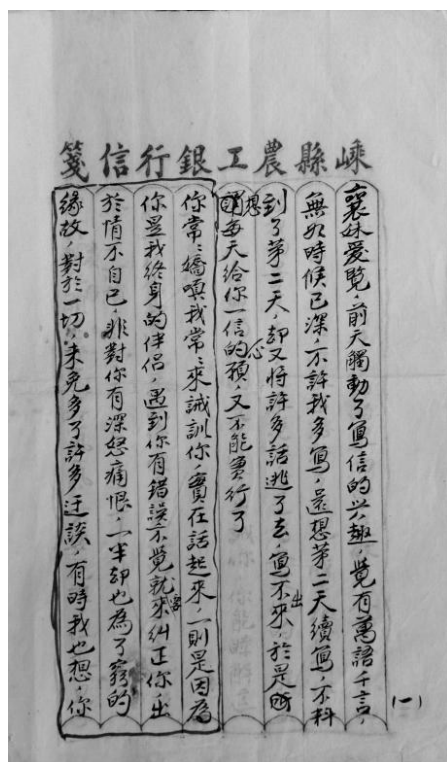 嵊縣農工銀行信箋
(一)
襄妹愛覽，前天觸動了寫信的兴趣，覺有萬語千言，
無如時候已深，不許我多寫，還想第二天續寫，不料
到了第二天，却又将許多話逃了去，寫不出來，於是
想每天給你一信的願心，又不能實行了
你常〻嬌嗔我常〻來誡訓你，實在話起來，一則是因為
你是我終身的伴侶，遇到你有錯誤不覺就來糾正你，出
於情不自已，非對你有深怒痛恨，一半却也為了窮的
緣故，對於一切，未免多了許多迂談，有時我也想，你